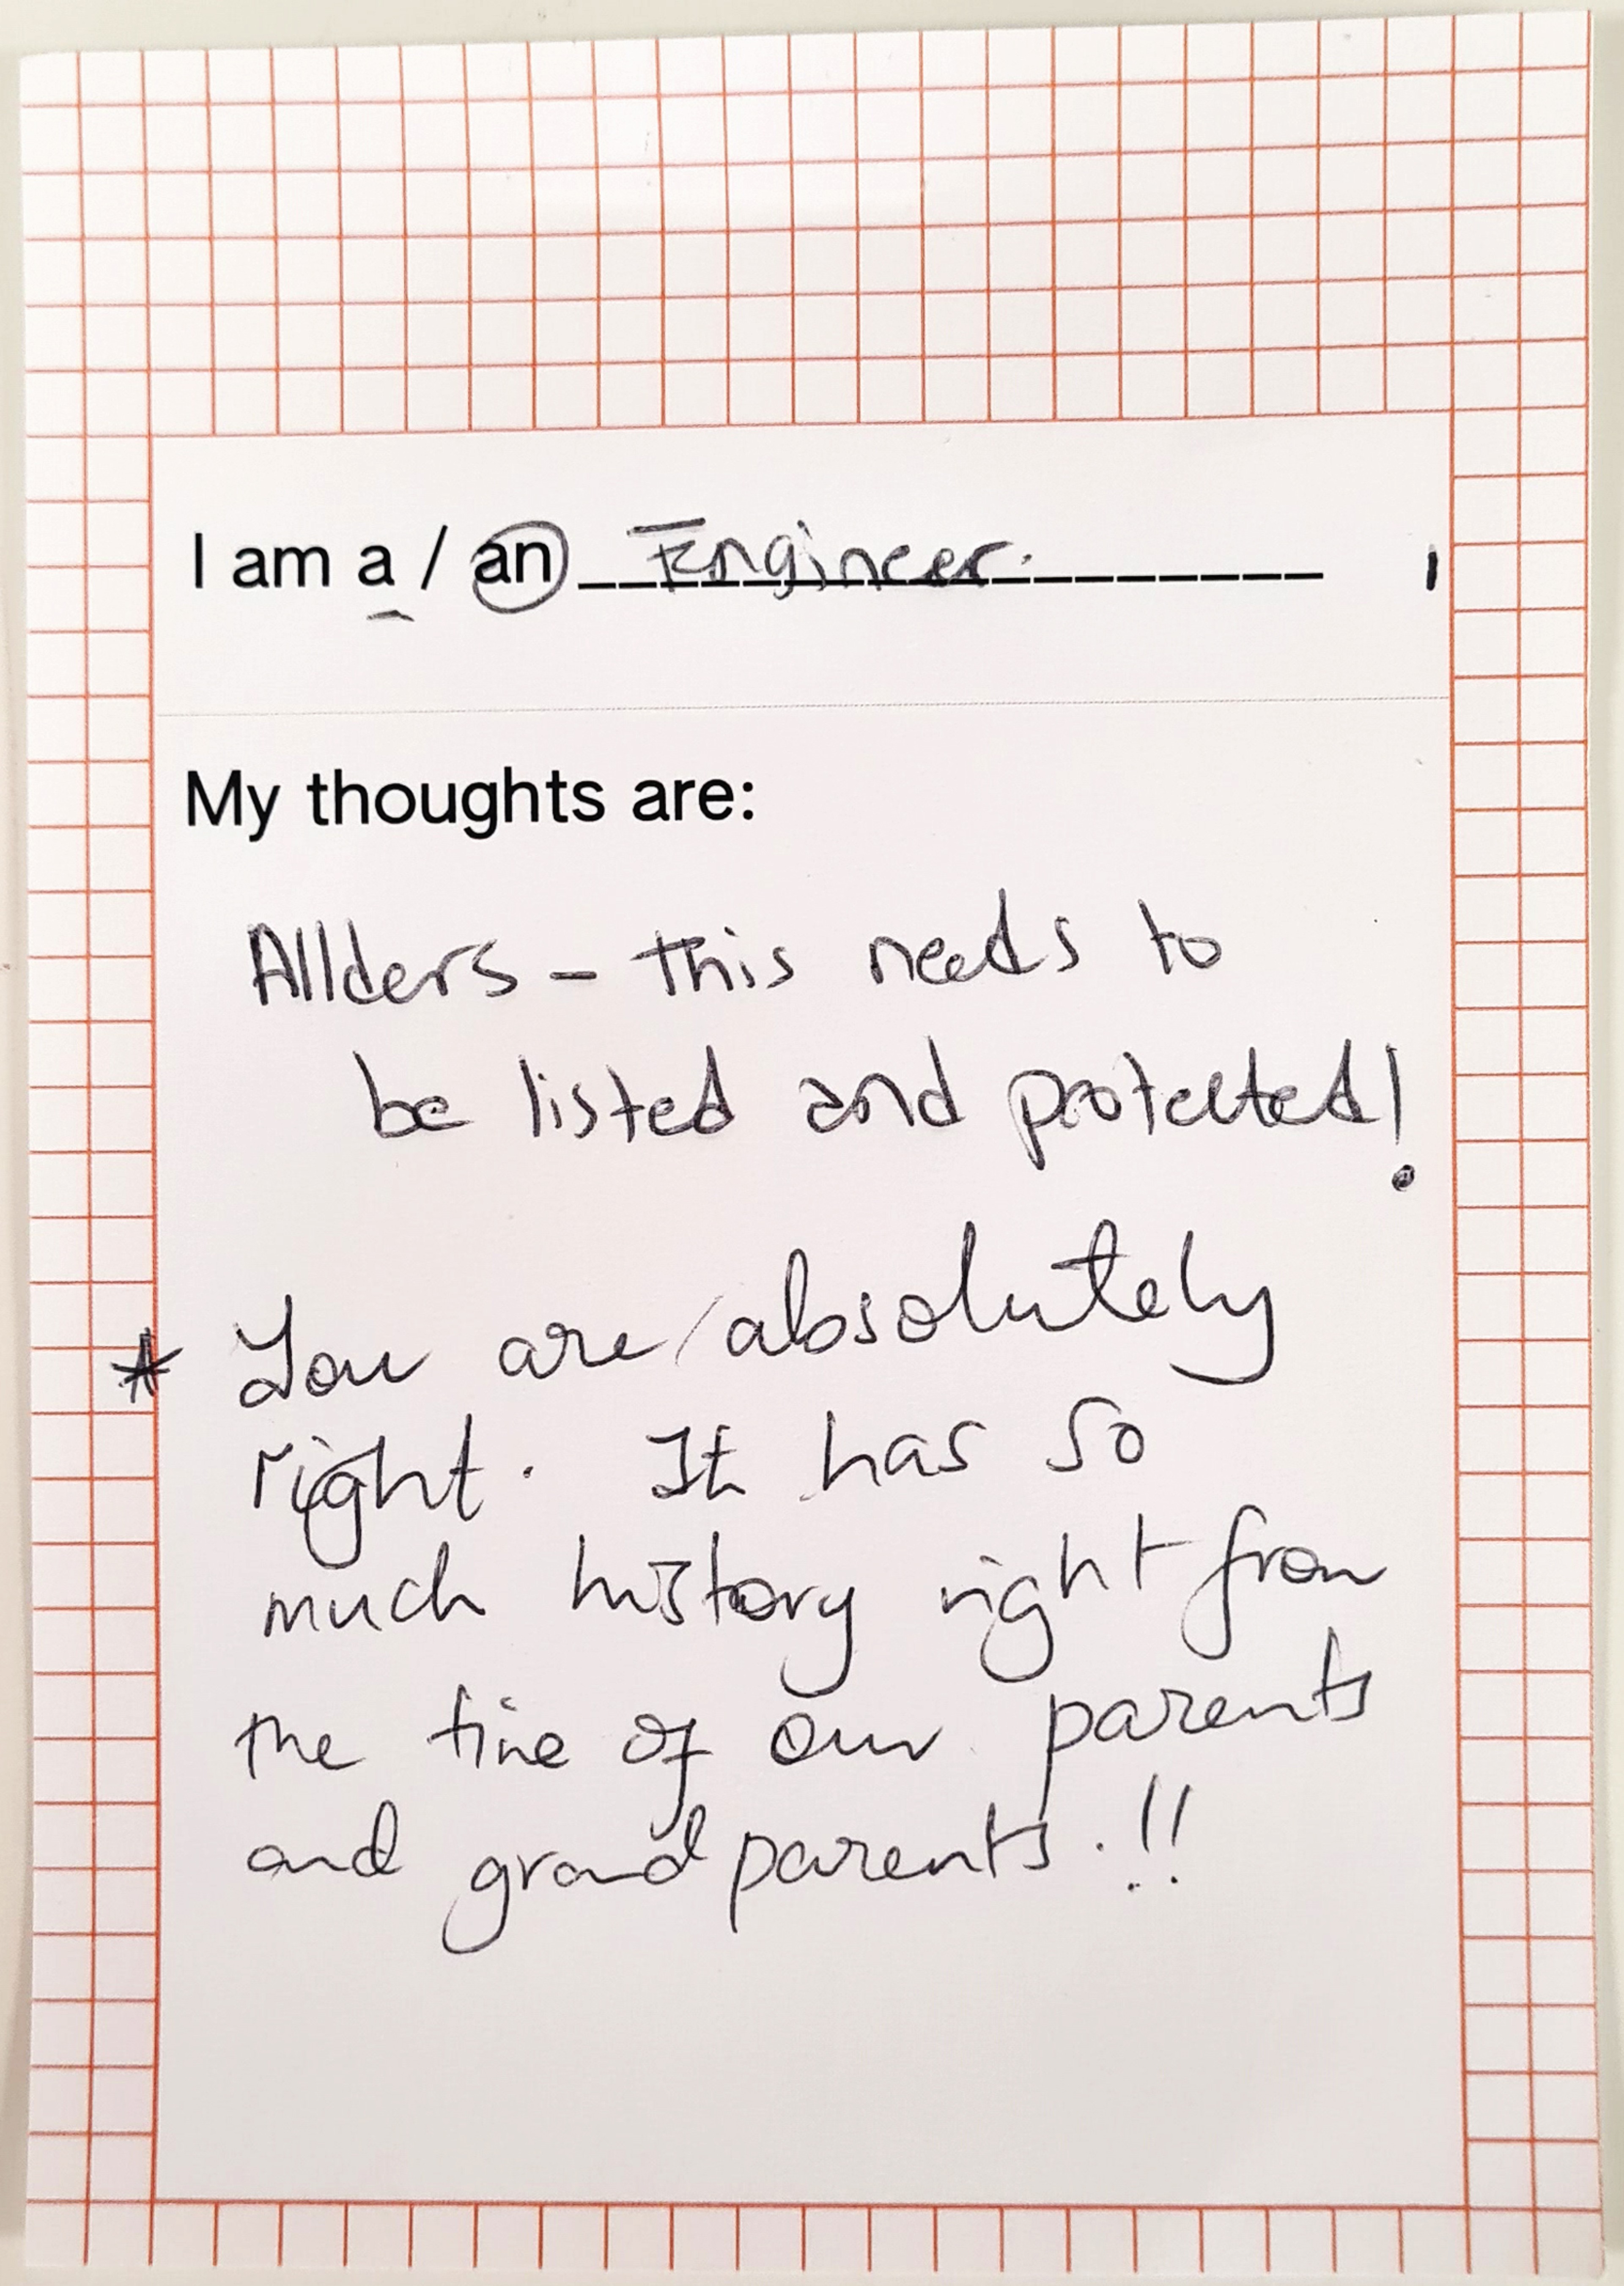 I am a / an Engineer.
My thoughts are:
Allders – this needs to
be listed and protected!
* You are absolutely
right. It has so
much history right from
the time of our parents
and grandparents.!!